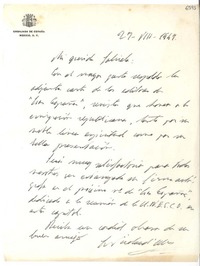 EMBAJADA DE ESPAÑA
MEXICO, D. F.
27-VIII-1947.
Mi querida Gabriela:
Con el mayor gusto respaldo la
adjunta carta de los editores de
"Las Españas", revista que honra a la
emigración republicana, tanto por
su noble línea espiritual como por su
bella presentación.
Será muy satisfactorio para todos
nosotros
en el próximo nº de "Las Españas",
dedicado a la reunión de la U.N.E.S.C.O. en
esta capital.
Reciba un cordial abrazo de su
buen amigo